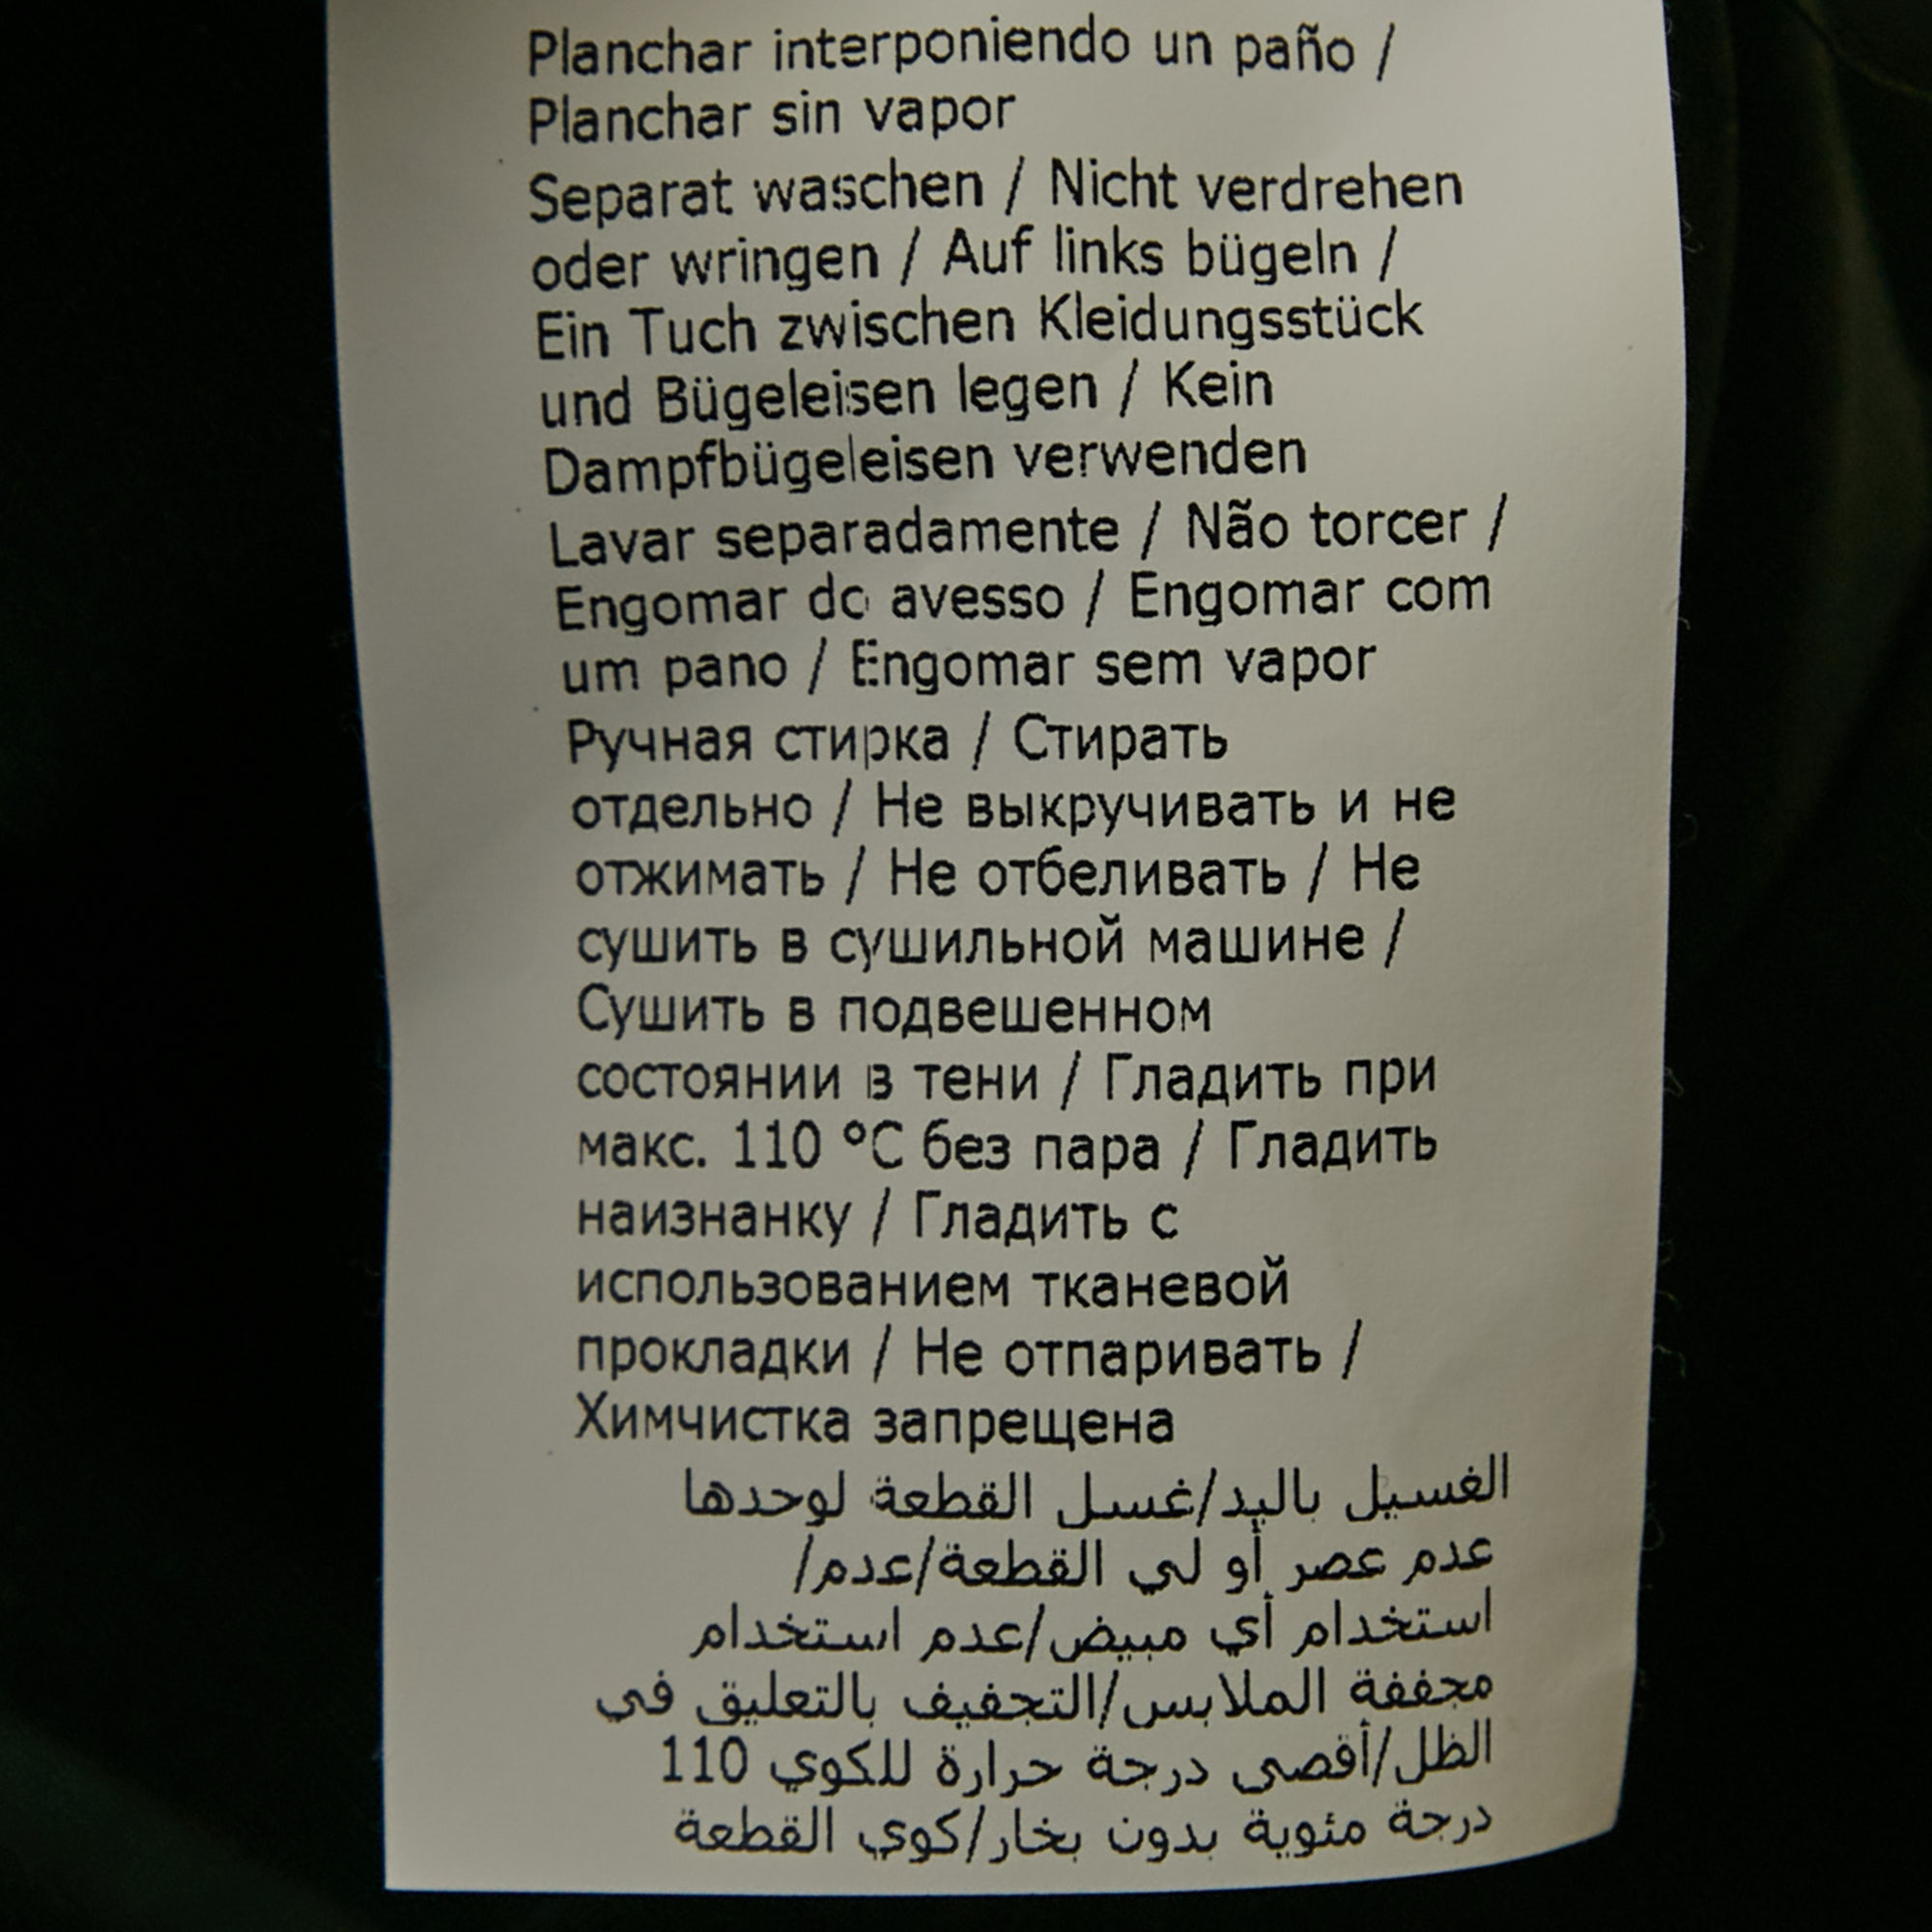 Planchar interponiendo un paño /
Planchar sin vapor
Separat waschen / Nicht verdrehen
oder wringen / Auf links bügeln /
Ein Tuch zwischen Kleidungsstück
und Bügeleisen legen / Kein
Dampfbügeleisen verwenden
Lavar separadamente / Não torcer /
Engomar do avesso / Engomar com
um pano / Engomar sem vapor
Ручная стирка / Стирать
отдельно / Не выкручивать и не
отжимать / Не отбеливать / Не
сушить в сушильной машине /
Сушить в подвешенном
состоянии в тени / Гладить при
макс. 110 °C без пара / Гладить
наизнанку / Гладить с
использованием тканевой
прокладки / Не отпаривать /
Химчистка запрещена
الغسيل باليد/غسل القطعة لوحدها
عدم عصر أو لي القطعة/عدم/
استخدام أي مبيض/عدم استخدام
مجففة الملابس/التجفيف بالتعليق في
الظل/أقصى درجة حرارة للكوي 110
درجة مئوية بدون بخار/كوي القطعة